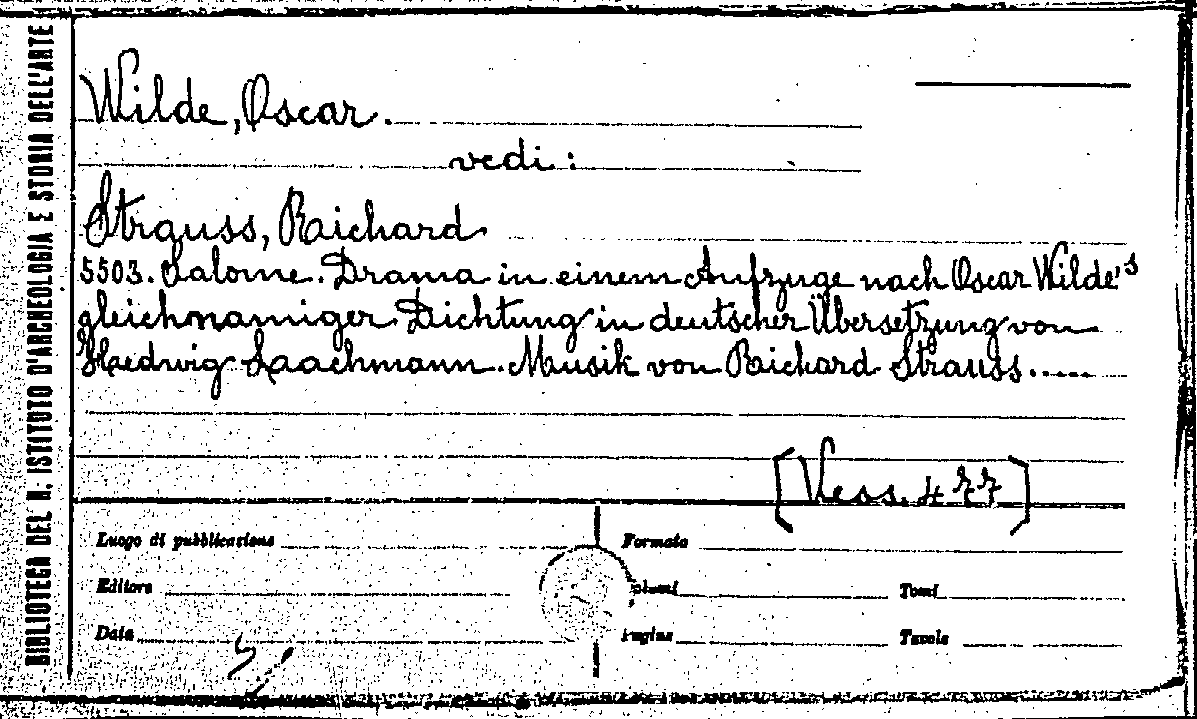 BIBLIOTECA DEL R. ISTITUTO D'ARCHEOLOGIA E STORIA DELL'ARTE
Wilde, Oscar.
vedi:
Strauss, Richard
5503. Salome. Drama in einem Aufzuge nach Oscar Wilde's
gleichnamiger Dichtung in deutscher Übersetzung von
Hedwig Laachmann. Musik von Richard Strauss.....
[Vess. 477]
Luogo di pubblicazione
Formato
Editore
Tomi
Data
Tavole